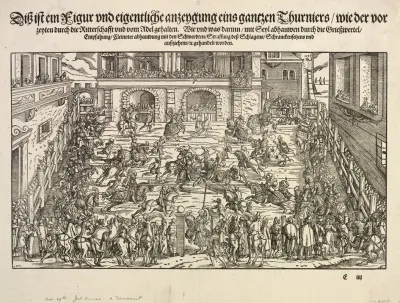 Diß ist ein Figur vnd eigentliche anzeygung eins gantzen Thurniers / wie der vor
zeyten durch die Ritterschafft vnd vom Adel gehalten. Wie vnd was darinn / mit Seyl abhauwen durch die Grießwertel /
Empfahung / Cleinoter abhauwung mit den Schwerdten / Straffung des Schlagens / Schranckensetzens vnd
auffziehens ꝛc. gehandelt worden.
C iiij
Jost Amman
a Tournament